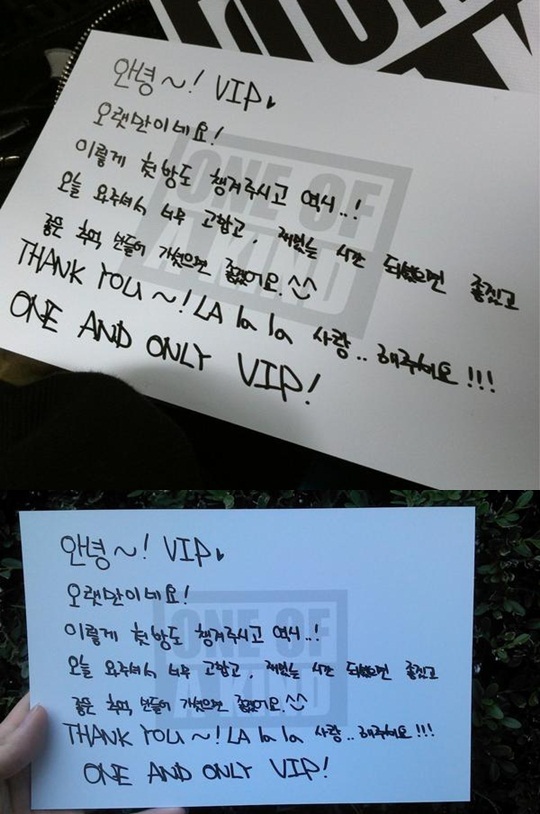 안녕~! VIP♥
오랫만이네요!
이렇게 첫방도 챙겨주시고 역시..!
오늘 와주셔서 너무 고맙고, 재밌는 시간 되셨으면 좋겠고
좋은 추억 만들어 가셨으면 좋겠어요.^^
THANK YOU~! LA la la 사랑..해주세요!!!
ONE AND ONLY VIP!
ONE OF
A KIND
안녕~! VIP♥
오랫만이네요!
이렇게 첫방도 챙겨주시고 역시..!
오늘 와주셔서 너무 고맙고, 재밌는 시간 되셨으면 좋겠고
좋은 추억 만들어 가셨으면 좋겠어요.^^
THANK YOU~! LA la la 사랑..해주세요!!!
ONE AND ONLY VIP!
ONE OF
A KIND